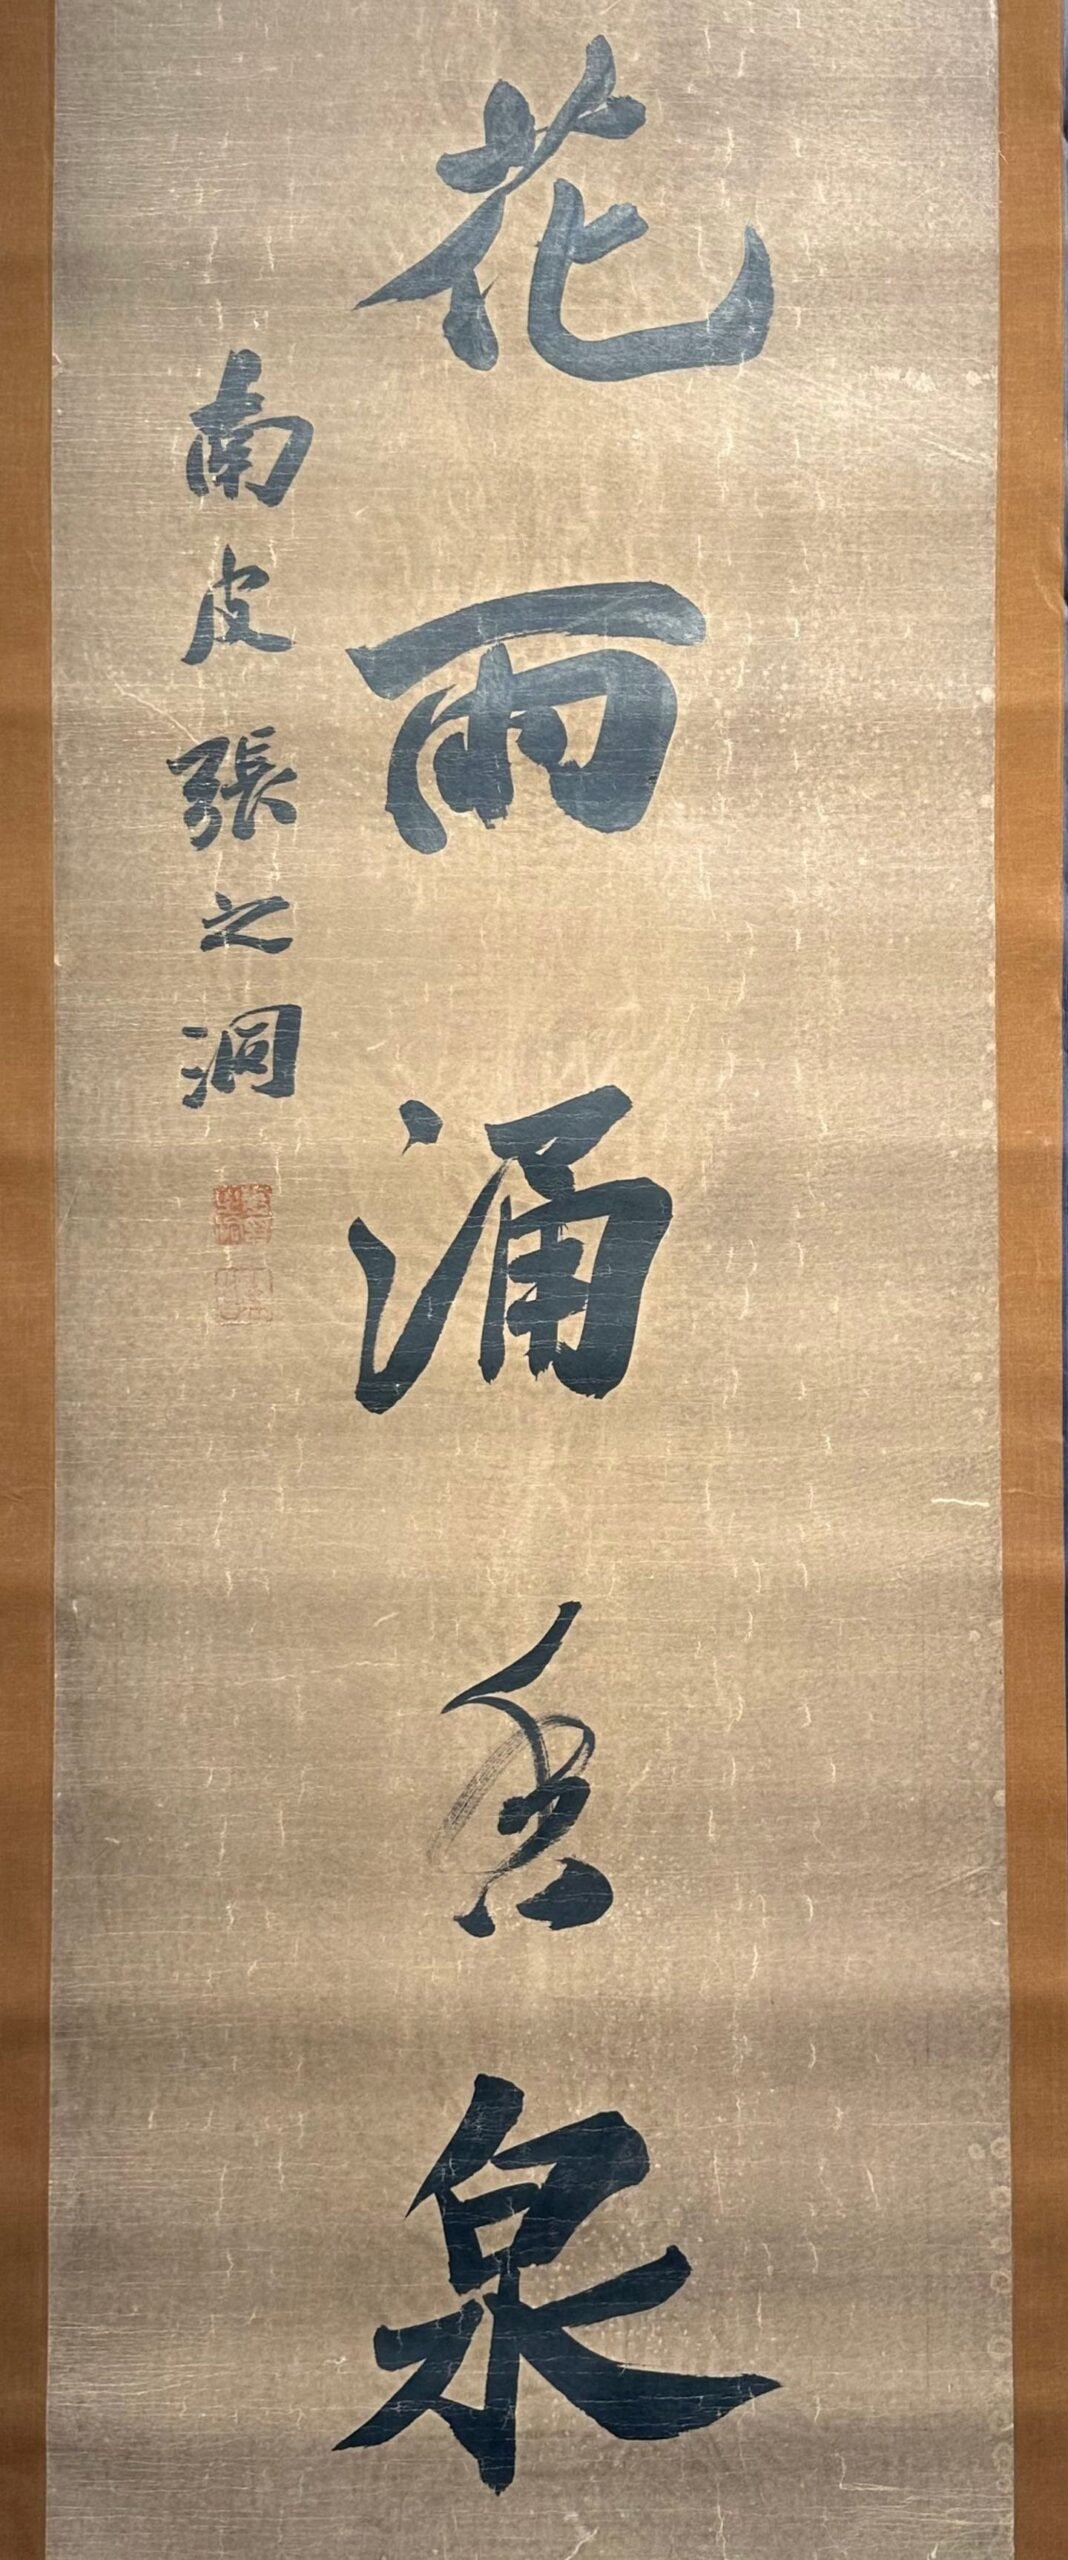 花雨涌香泉
南皮張之洞